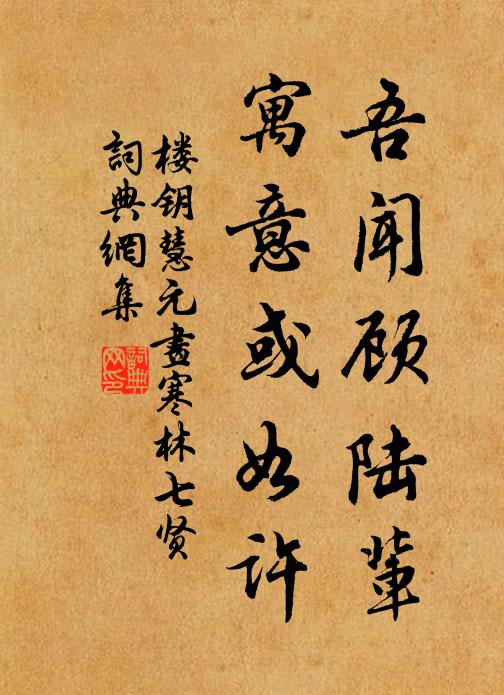 吾闻顾陆辈
寓意或如许
楼钥慧元画寒林七贤
词典網集
詞典网印